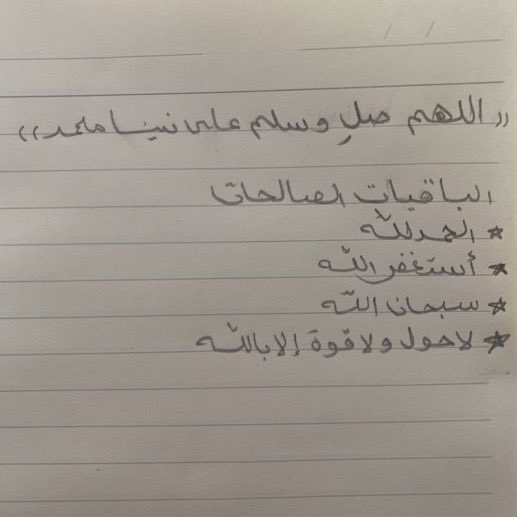 (( اللهم صلِ وسلم على نبينا محمد ))
الباقيات الصالحات
* الحمدلله
* أستغفر الله
* سبحان الله
* لاحول ولا قوة إلا بالله